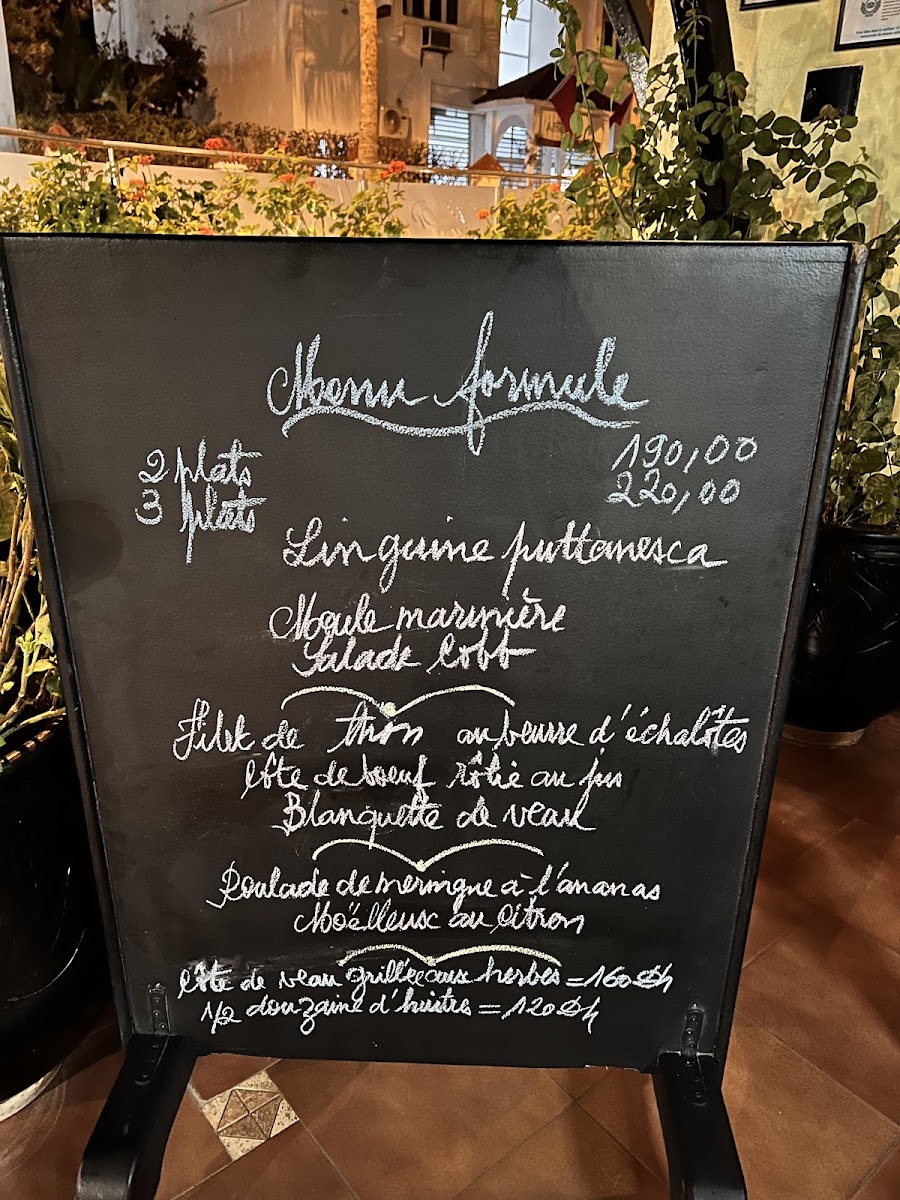 Menu formule
2 plats 190,00
3 plats 220,00
Linguine puttanesca
Moule marinière
Salade Cobb
Filet de thon au beurre d'échalôtes
Côte de boeuf rôtie au jus
Blanquette de veau
Roulade de meringue à l'ananas
Moëlleux au Citron
Côte de veau grillée aux herbes = 160 Dh
1/2 douzaine d'huitres = 120 Dh